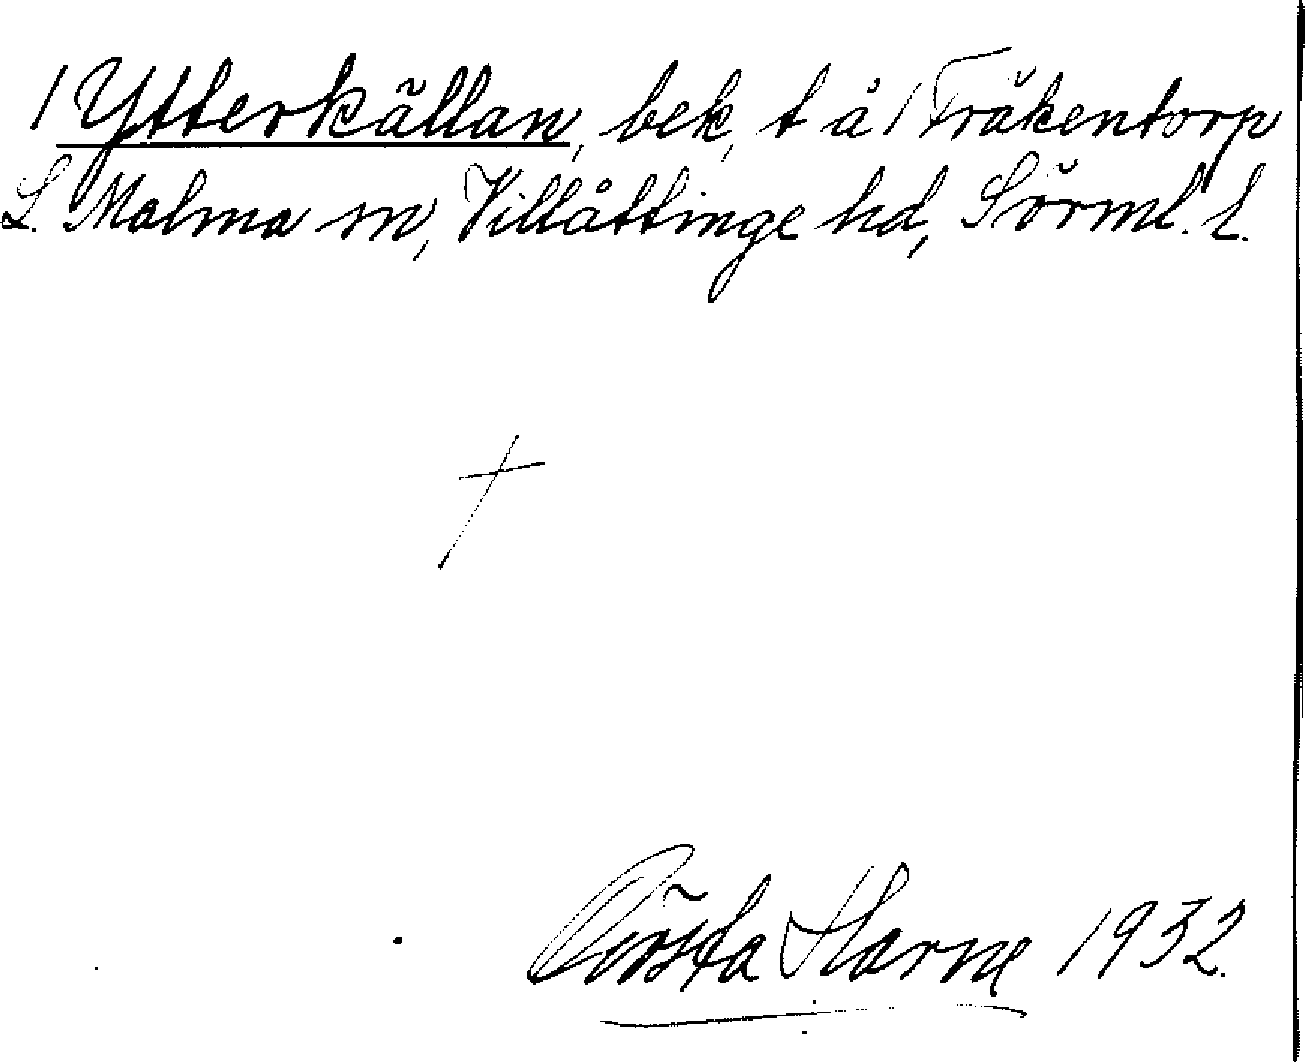 / Ytterkällan, bek, t å / Fräkentorp
L. Malma sn, Villåttinge hd, Sörml. l.
Gösta Harne 1932.